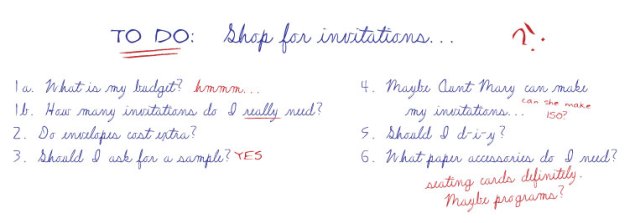 TO DO: Shop for invitations... ?!
1a. What is my budget? hmmm...
1b. How many invitations do I really need?
2. Do envelopes cost extra?
3. Should I ask for a sample? YES
4. Maybe Aunt Mary can make
my invitations... can she make
150?
5. Should I d-i-y?
6. What paper accessories do I need?
seating cards definitely.
Maybe programs?